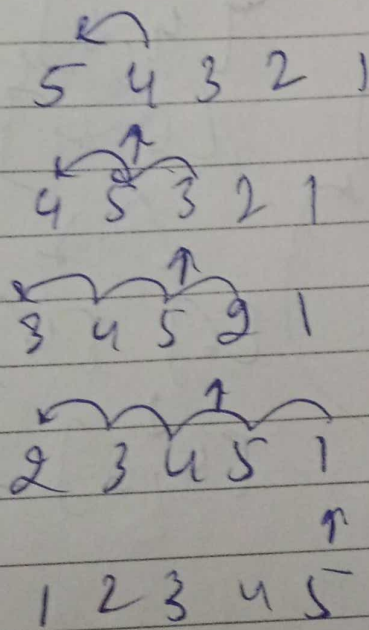 5 4 3 2 1
4 5 3 2 1
3 4 5 2 1
2 3 4 5 1
1 2 3 4 5